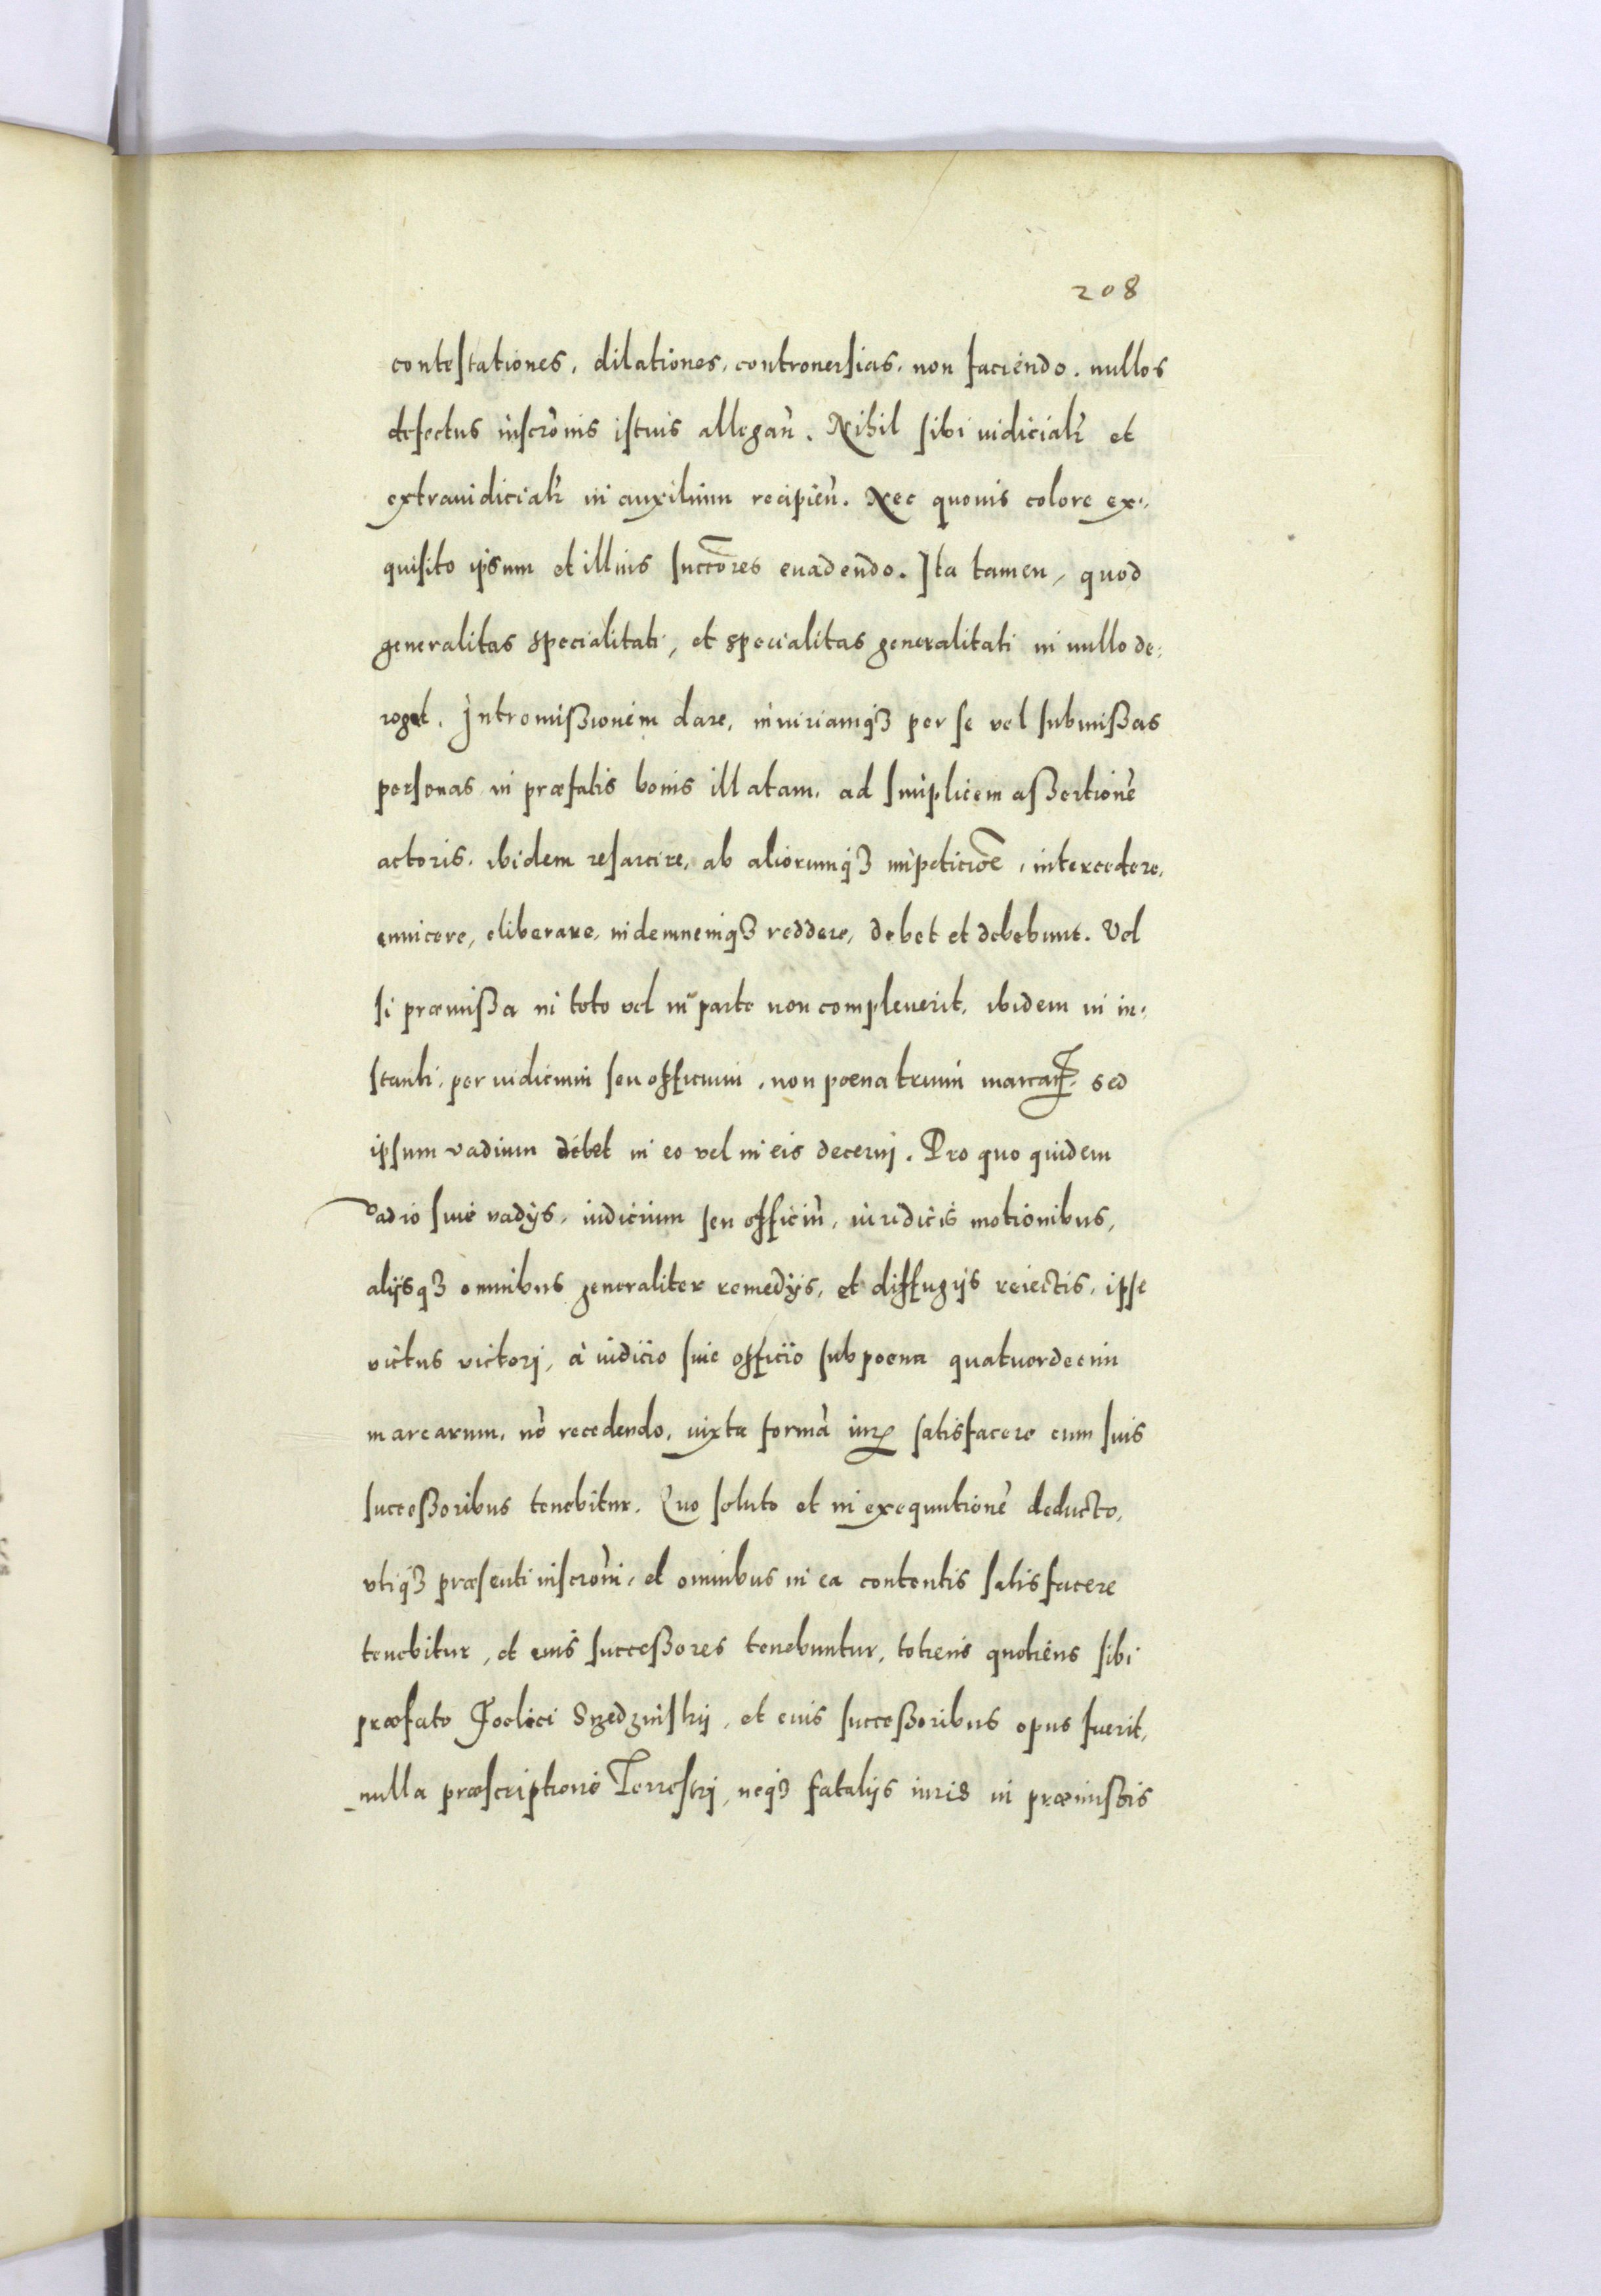 208
contestationes, dilationes, controuersias, non faciendo. nullos
defectus inscrõnis istius allegañ. Nihil sibi iudicialr et
extraiudicialr in auxilium recipieñ. Nec quouis colore ex:
quisito ipsum et illius succõres euadendo. Ita tamen, quod
generalitas specialitati, et specialitas generalitati in nullo de:
roget. Intromißionem dare, iniuriamqꝫ per se vel submißas
personas in præfatis bonis illatam, ad simplicem aßertionẽ
actoris, ibidem resarcire, ab aliorumqꝫ impeticiõe, intercedere,
euuicere, eliberare, indemnemqꝫ reddere, debet et debebunt. Vel
si præmißa in toto vel in parte non compleuerit, ibidem in in:
stanti, per iudicium seu officium, non poena trium marcarꝝ, sed
ipsum vadium debet in eo vel in eis decerni. Pro quo quidem
vadio siue vadijs, iudicium seu officiũ, iuridicis motionibus,
alijsqꝫ omnibus generaliter remedijs, et diffugijs reiectis, ipse
victus victori, à iudicio siue officio sub poena quatuordecim
marcarum, nõ recedendo, iuxta formã iurꝭ satisfacere cum suis
succeßoribus tenebitur. Quo soluto et in exequutionẽ deducto,
vtiqꝫ præsenti inscrõni, et omnibus in ea contentis satisfacere
tenebitur, et eius succeßores tenebuntur, totiens quotiens sibi
præfato Foelici Szedzinskij, et eius succeßoribus opus fuerit,
nulla præscriptione Terrestrj, neqꝫ fatalijs iuris in præmissis